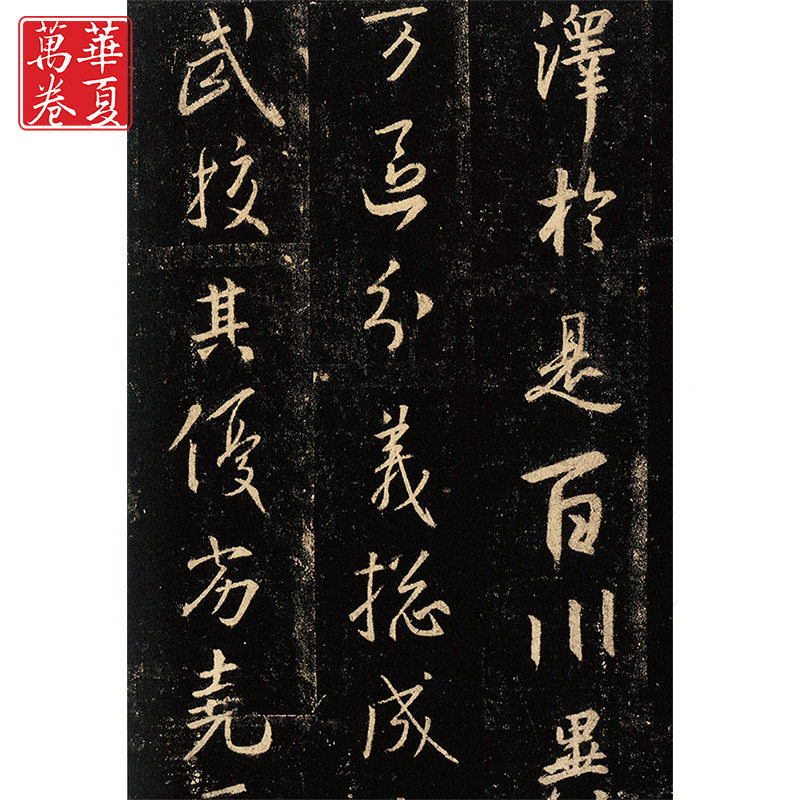 華夏
萬卷
澤於是百川異
万區分義揔成
武校其優劣堯